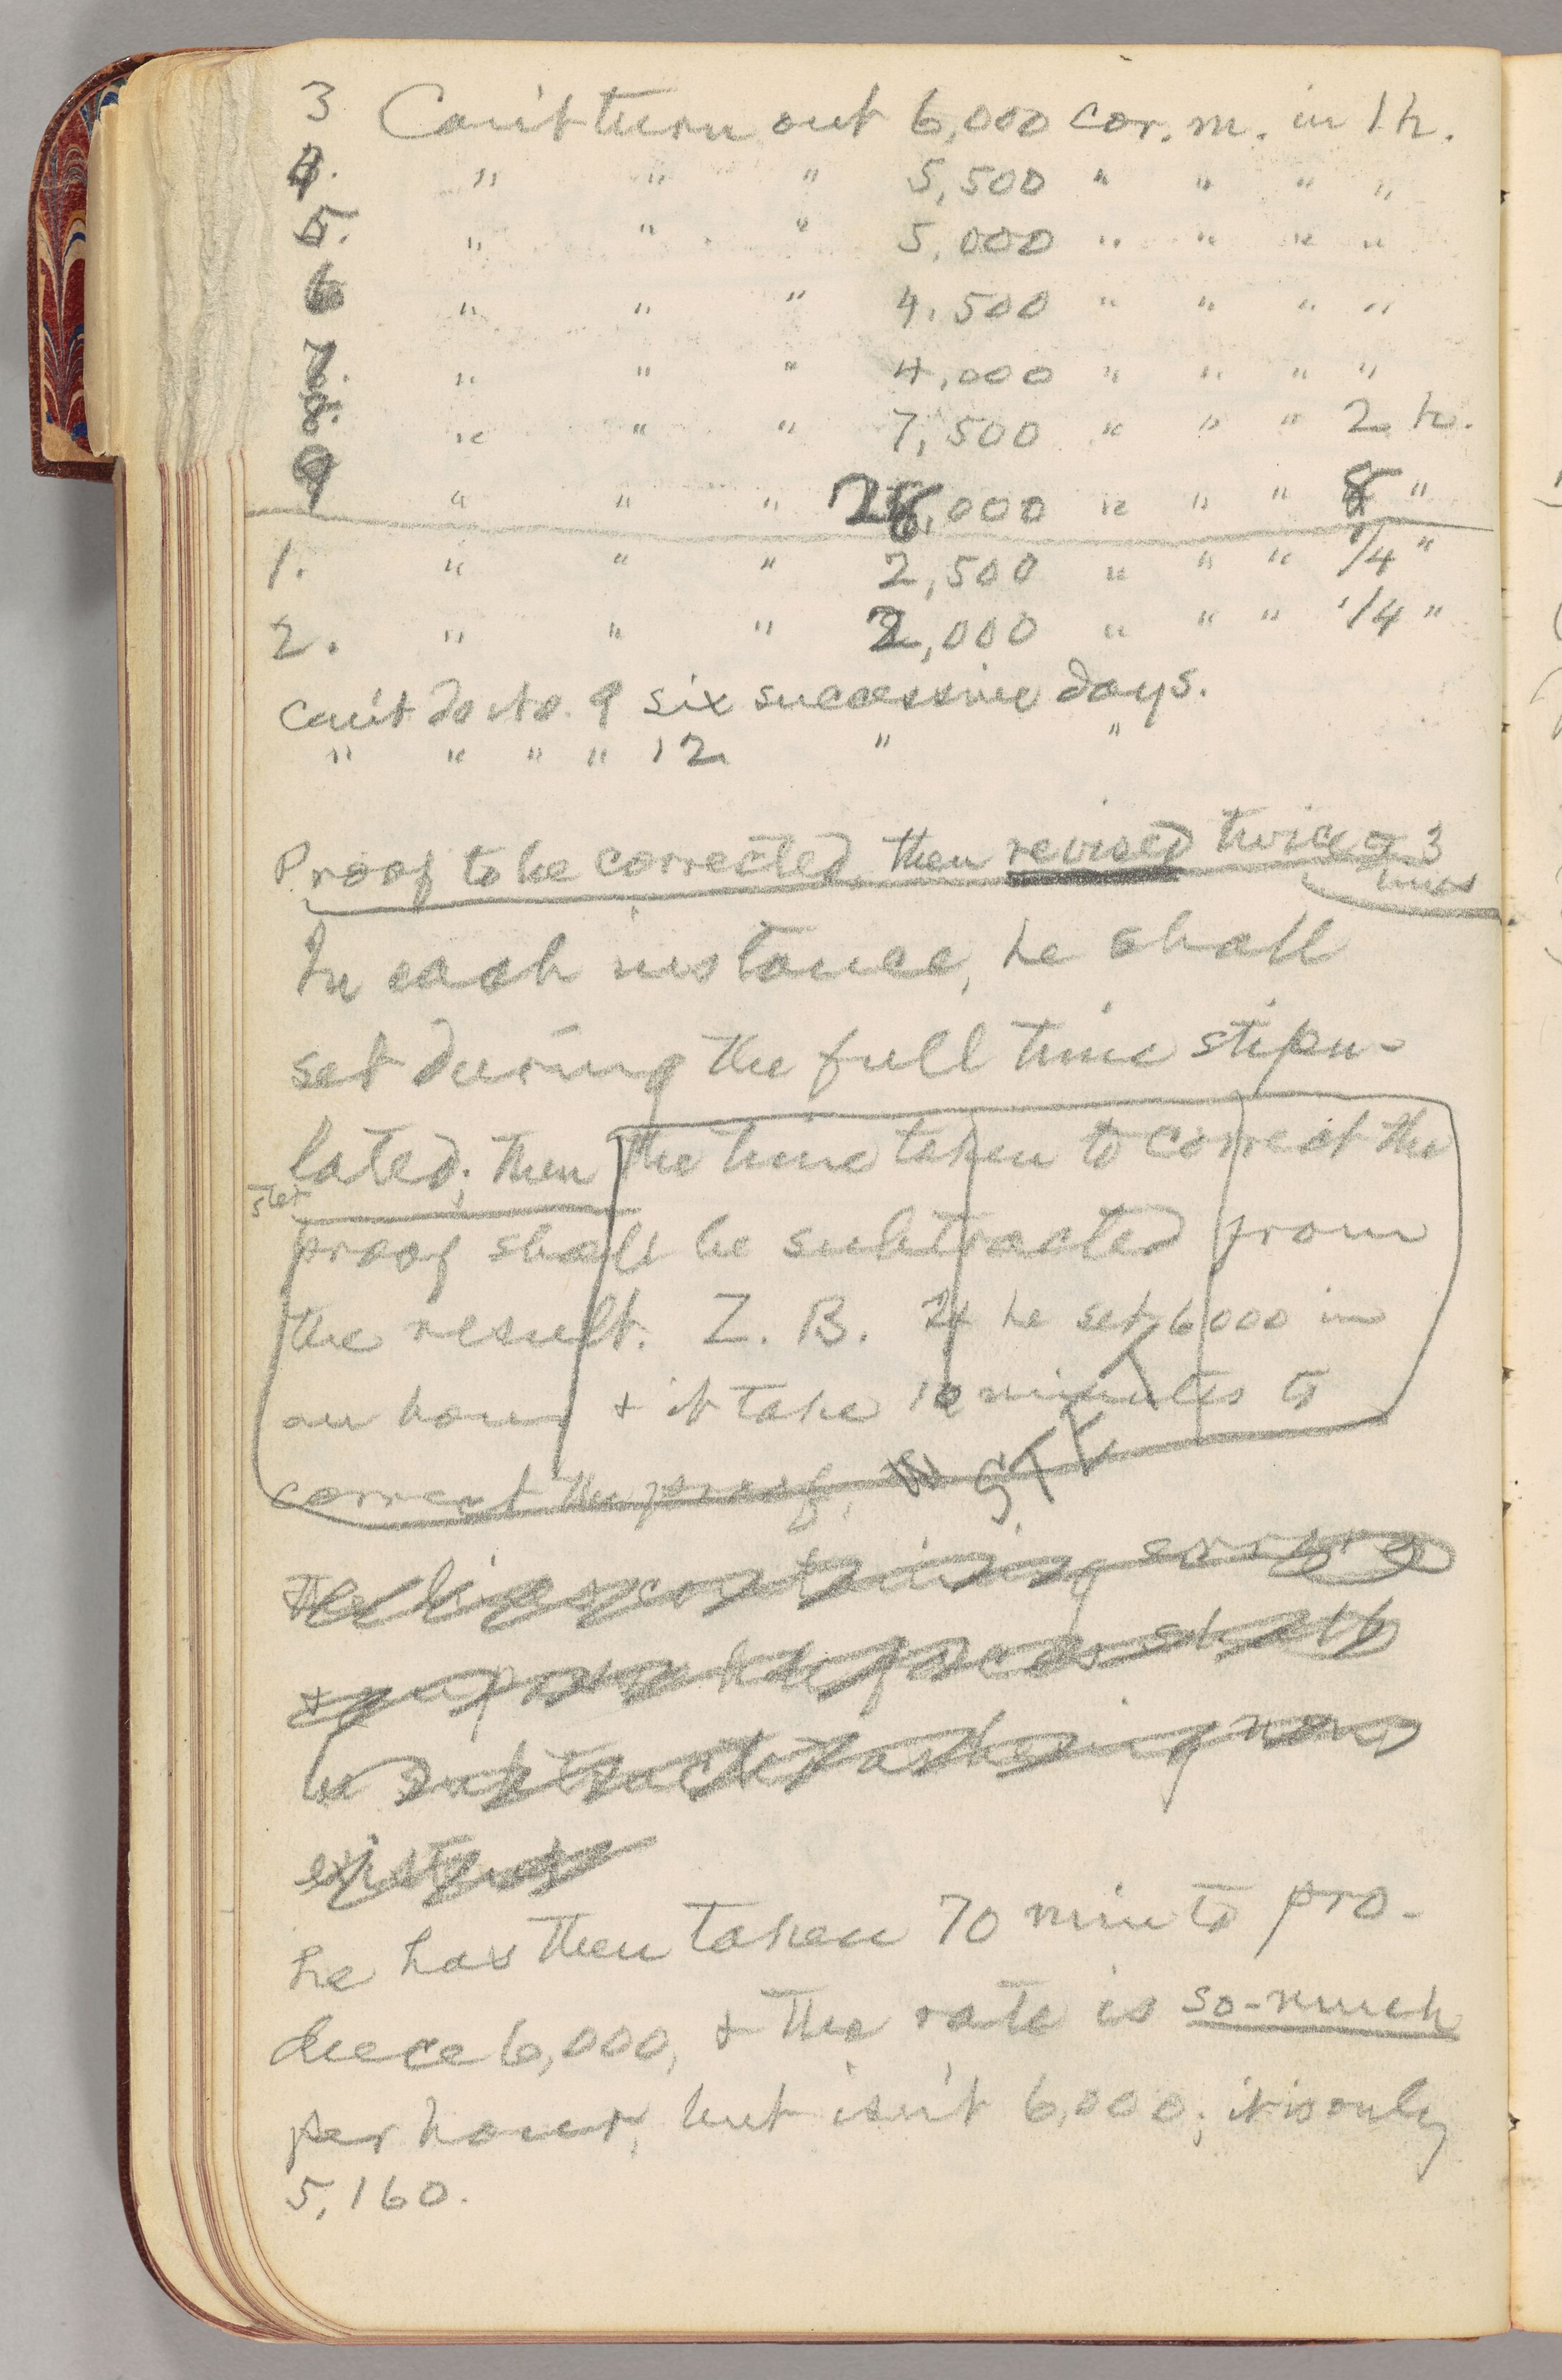 3 Can't turn out 6,000 cor. m. in 1 h.
4. " " " 5,500 " " " "
5. " " " 5,000 " " " "
6 " " " 4,500 " " " "
7. " " " 4,000 " " " "
8. " " " 7,500 " " " 2 h.
9 " " " 28,000 " " " 8 "
1. " " " 2,500 " " " 1/4 "
2. " " " 2,000 " " " 1/4 "
Can't do No. 9 six successive days.
" " " " 12 " "
Proof to be corrected, then revised twice or 3
times
In each instance, he shall
set during the full time stipu-
lated; then the time taken to correct the
stet
proof shall be subtracted from
the result. Z. B. If he set 6,000 in
an hour & it take 10 minutes to
correct the proof,
the lines containing errors
& be subtracted as being non-
existent
he has then taken 70 min to pro-
duece 6,000, & the rate is so-much
per hour, but isn't 6,000; it is only
5,160.